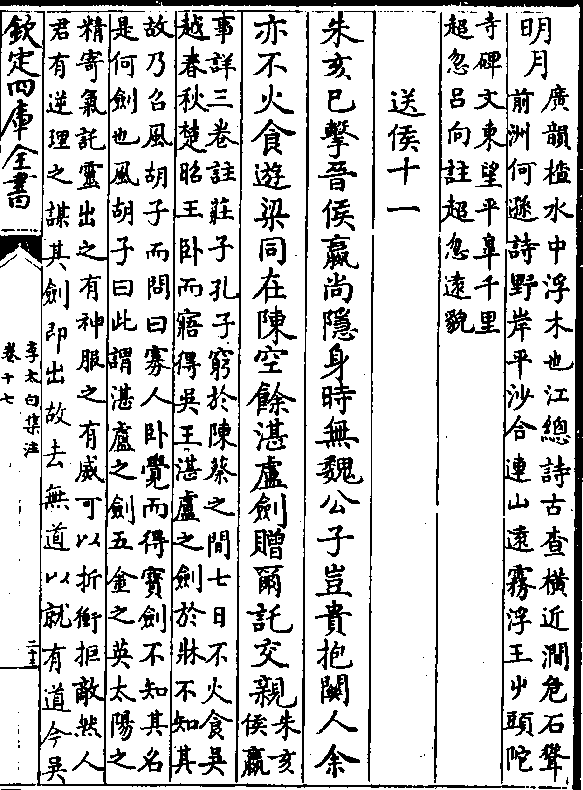 明月
廣韻楂水中浮木也江總詩古查橫近澗危石聳
前洲何遜詩野岸平沙合連山遠霧浮王屮頭陀
寺碑文東望平臯千里
超忽呂向註超忽遠貌
送侯十一
朱亥已擊晉侯嬴尚隱身時無魏公子豈貴抱關人余
亦不火食遊梁同在陳空餘湛盧劍贈爾託交親
朱亥
侯嬴
事詳三卷註莊子孔子窮於陳蔡之間七日不火食吳
越春秋楚昭王卧而寤得吳王湛盧之劍於牀不知其
故乃召風胡子而問曰寡人卧覺而得寶劍不知其名
是何劍也風胡子曰此謂湛盧之劍五金之英太陽之
精寄氣託靈出之有神服之有威可以折衝拒敵然人
君有逆理之謀其劍即出故去無道以就有道今吳
欽定四庫全書
李太白集注
卷十七
二十三